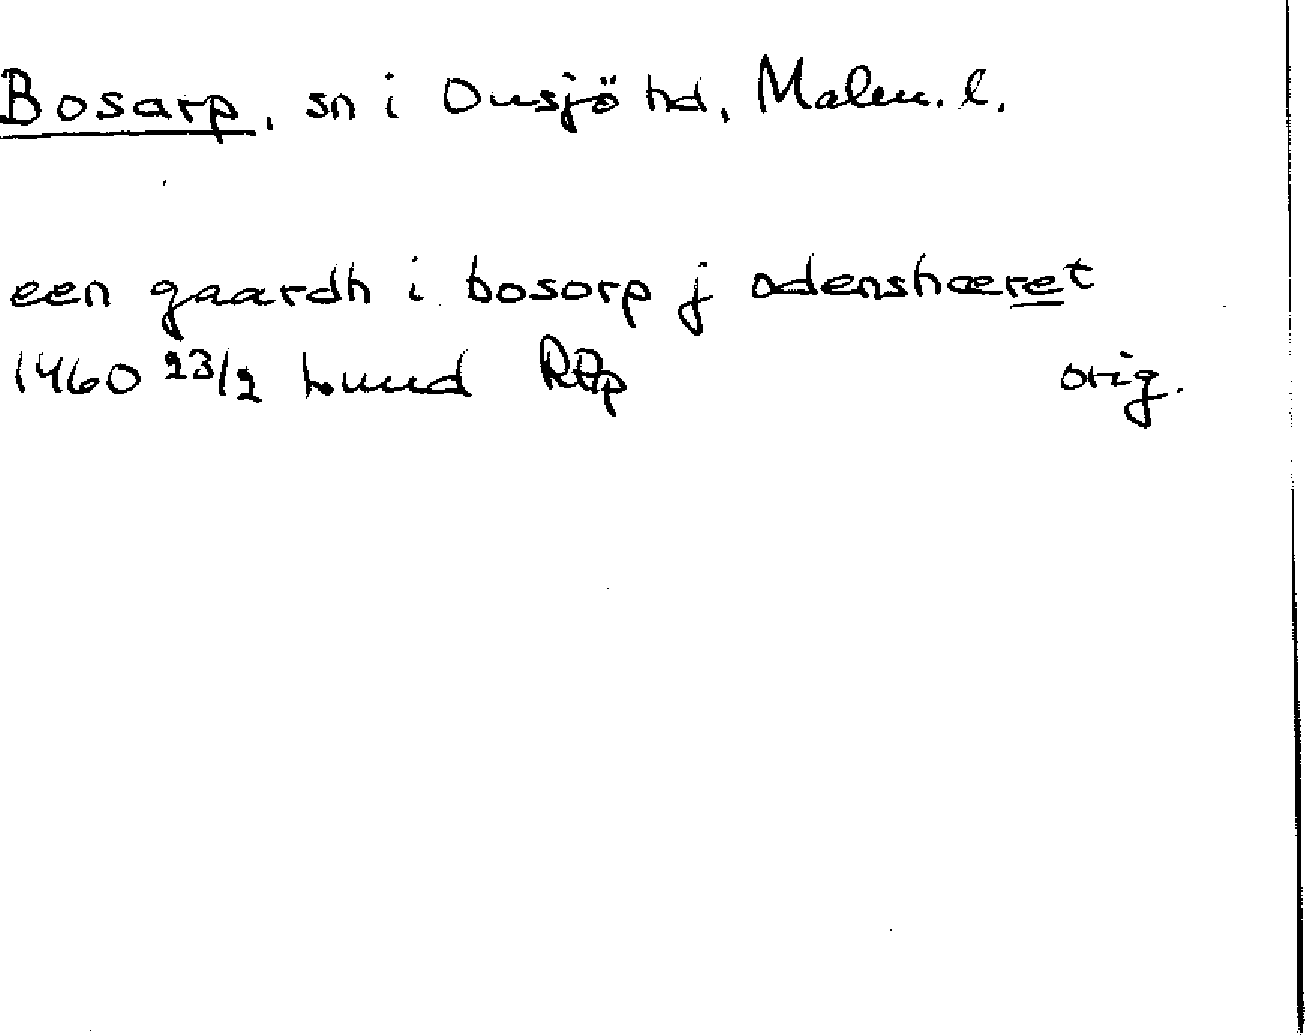 Bosarp, sn i Onsjö hd, Malm. l.
een gaardh i bosorp j odenshæret
1460 23/2 Lund RPp
orig.